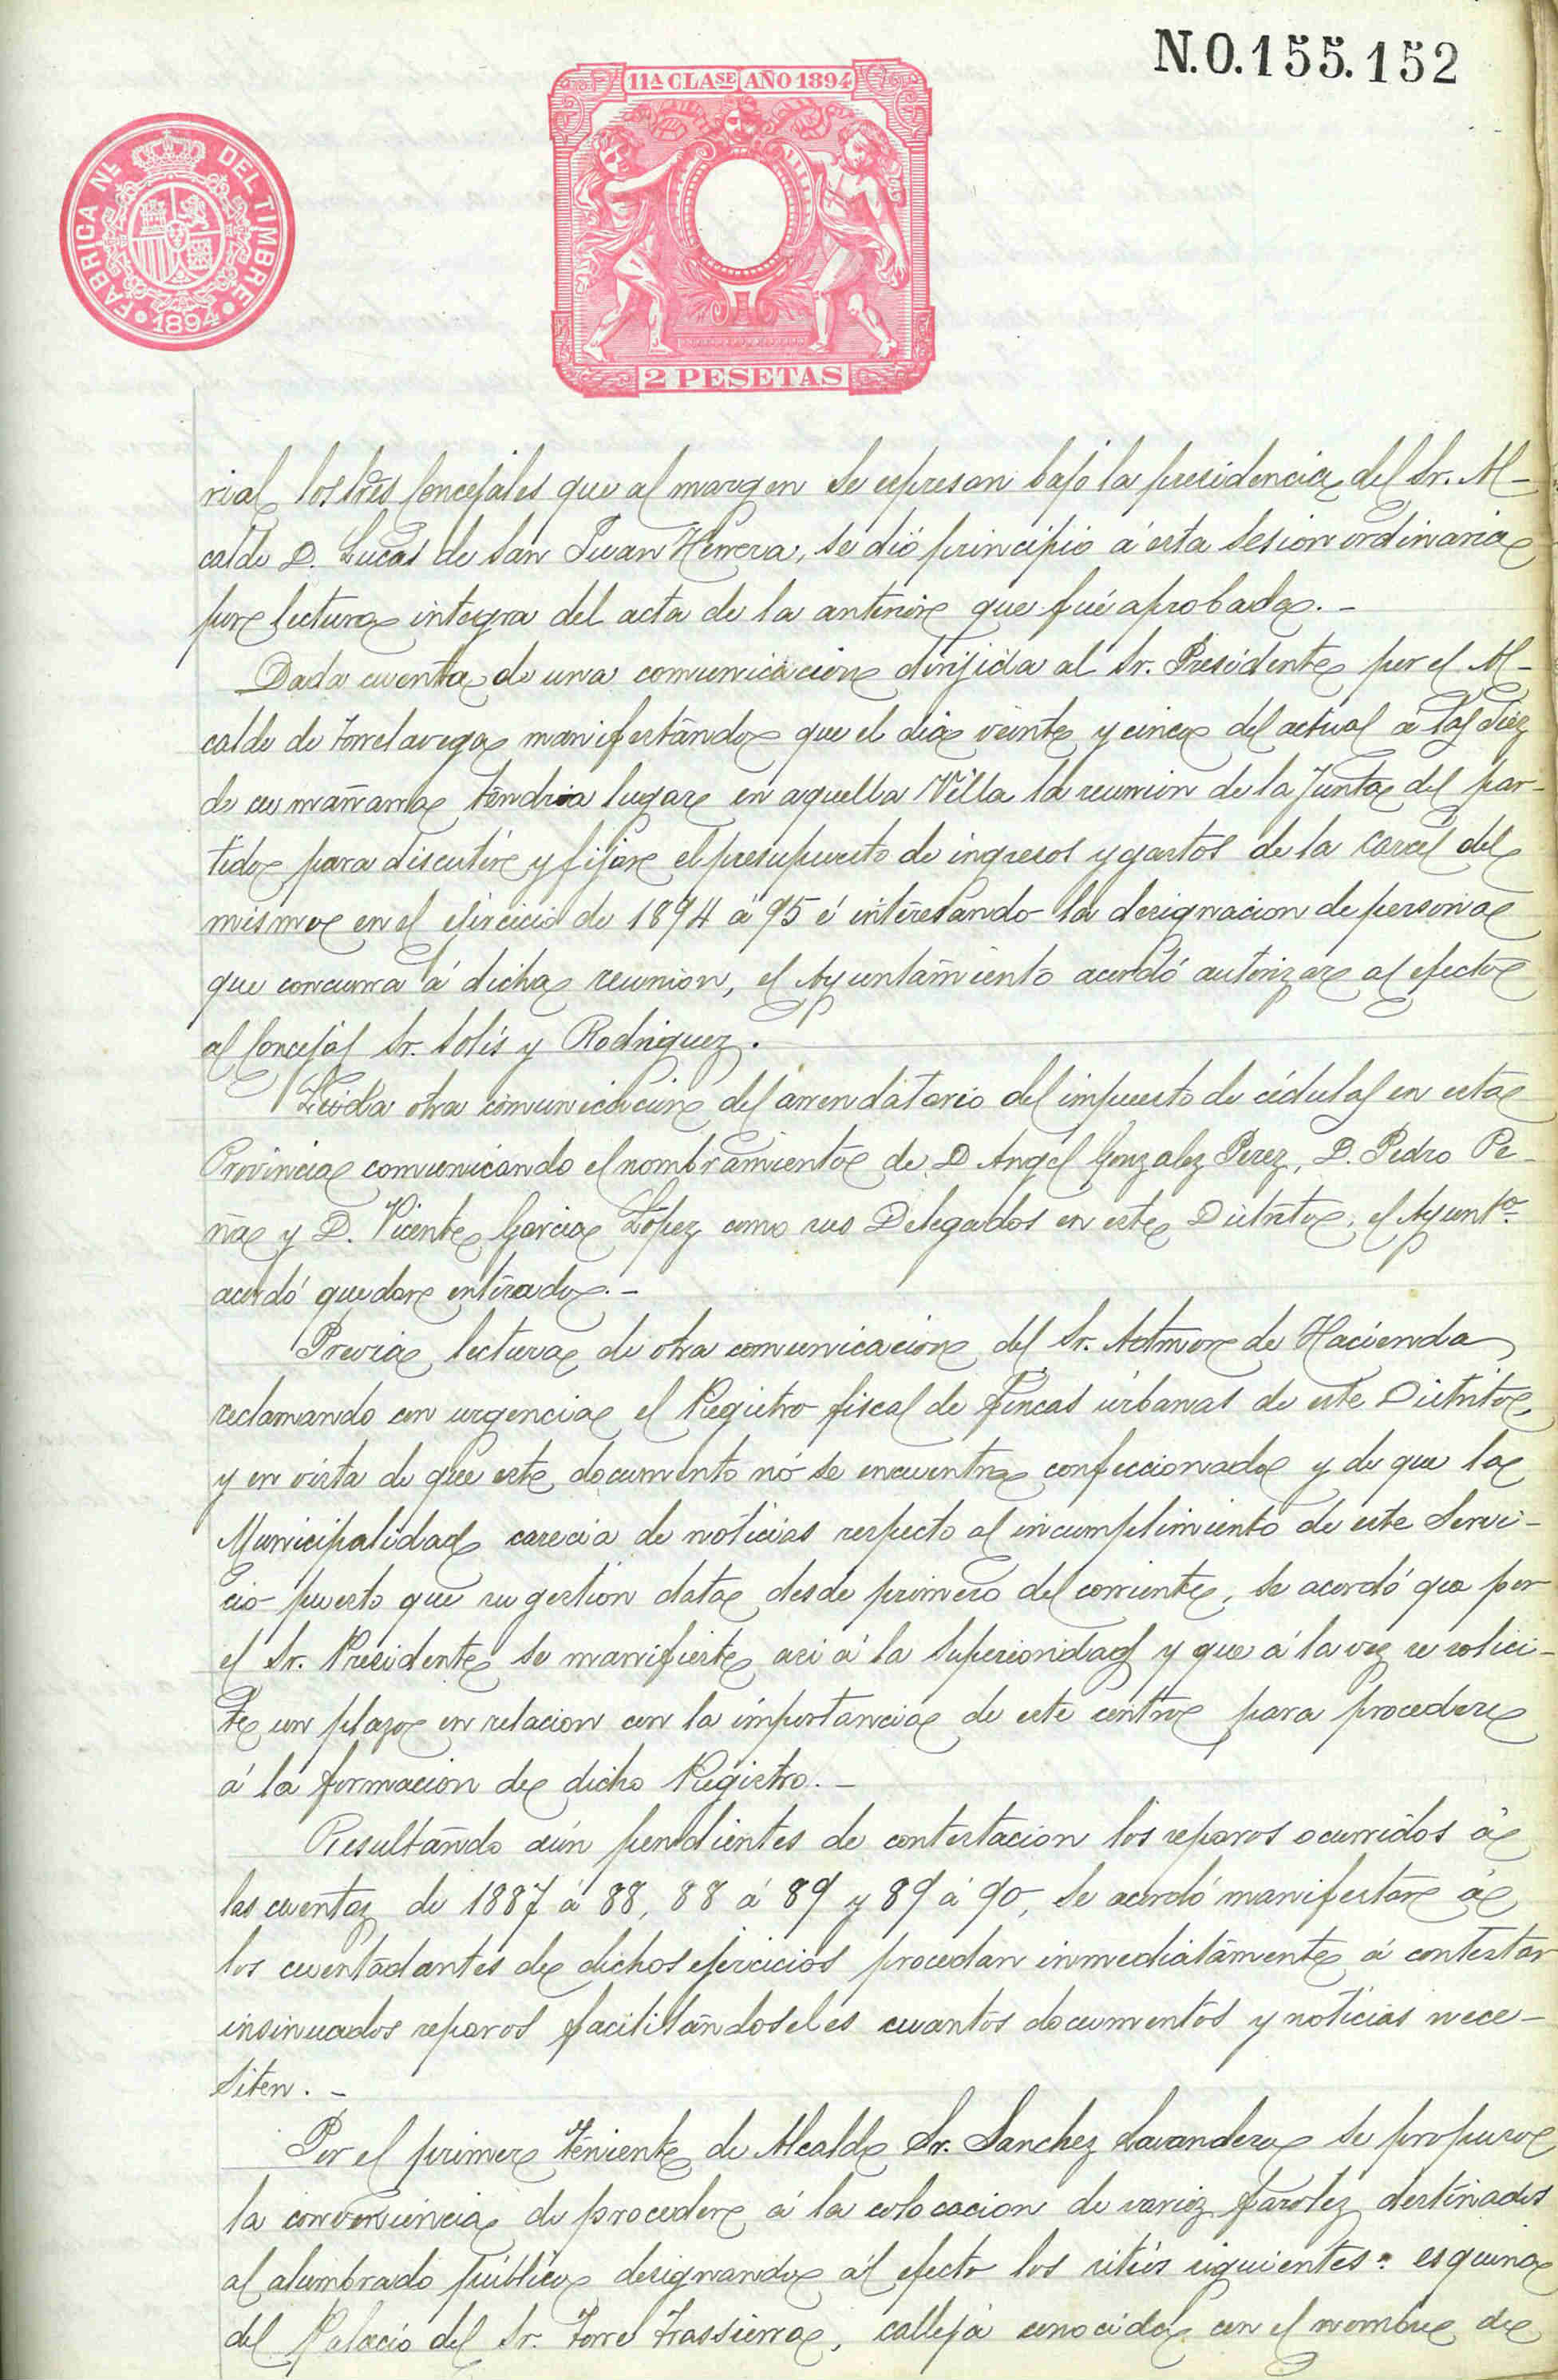 N.0.155.152
11ª CLASE AÑO 1894
FABRICA Nᴸ DEL TIMBRE
1894
2 PESETAS
rial los Sres Concejales que al margen se espresan bajo la presidencia del Sr. Al-
calde D. Lucas de San Juan Herrera, se dió principio á esta sesion ordinaria
por lectura integra del acta de la anterior que fué aprobada.-
Dada cuenta de una comunicacion dirijida al Sr. Presidente por el Al-
calde de Torrelavega manifestando que el dia veinte y cinco del actual á las diez
de su mañana tendria lugar en aquella Villa la reunion de la Junta del par-
tido para discutir y fijar el presupuesto de ingresos y gastos de la carcel del
mismo en el ejercicio de 1894 á 95 é interesando la designacion de persona
que concurra á dicha reunion, el Ayuntamiento acordó autorizar al efecto
al Concejal Sr. Solís y Rodriguez.
Leida otra comunicacion del arrendatario del impuesto de cédulas en esta
Provincia comunicando el nombramiento de D Angel Gonzalez Perez, D. Pedro Pe-
ña y D. Vicente Garcia López como sus Delegados en este Distrito, el Ayuntº
acordó quedar enterado.-
Previa lectura de otra comunicacion del Sr. Admor de Hacienda
reclamando con urgencia el Registro fiscal de fincas urbanas de este Distrito,
y en vista de que este documento nó se encuentra confeccionado y de que la
Municipalidad carecia de noticias respecto al incumplimiento de este Servi-
cio puesto que su gestion data desde primero del corriente, se acordó que por
el Sr. Presidente se manifieste asi á la Superioridad y que á la vez se solici-
te un plazo en relacion con la importancia de este centro para proceder
á la formacion de dicho Registro.-
Resultando aún pendientes de contestacion los reparos ocurridos á
las cuentas de 1887 á 88, 88 á 89 y 89 á 90, se acordó manifestar á
los cuentadantes de dichos ejercicios procedan inmediatamente á contestar
insinuados reparos facilitándoseles cuantos documentos y noticias nece-
siten.-
Por el primer Teniente de Alcalde Sr. Sanchez Lavandero se propuso
la conveniencia de proceder á la colocacion de varios faroles destinados
al alumbrado público designando al efecto los sitios siguientes: esquina
del Palacio del Sr. Torre Trassierra, calleja conocida con el nombre de